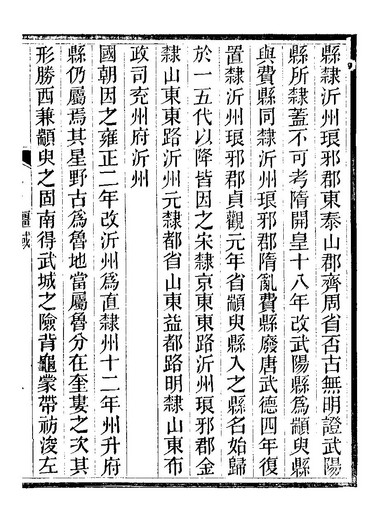 縣隸沂州琅邪郡東泰山郡齊周省否古無明證武陽
縣所隸蓋不可考隋開皇十八年改武陽縣為顓臾縣
與費縣同隸沂州琅邪郡隋亂費縣廢唐武德四年復
置隸沂州琅邪郡貞觀元年省顓臾縣入之縣名始歸
於一五代以降皆因之宋隸京東東路沂州琅邪郡金
隸山東東路沂州元隸都省山東益都路明隸山東布
政司兗州府沂州
國朝因之雍正二年改沂州為直隸州十二年州升府
縣仍屬焉其星野古為魯地當屬魯分在奎婁之次其
形勝西兼顓臾之固南得武城之險背龜蒙帶祊浚左
疆域